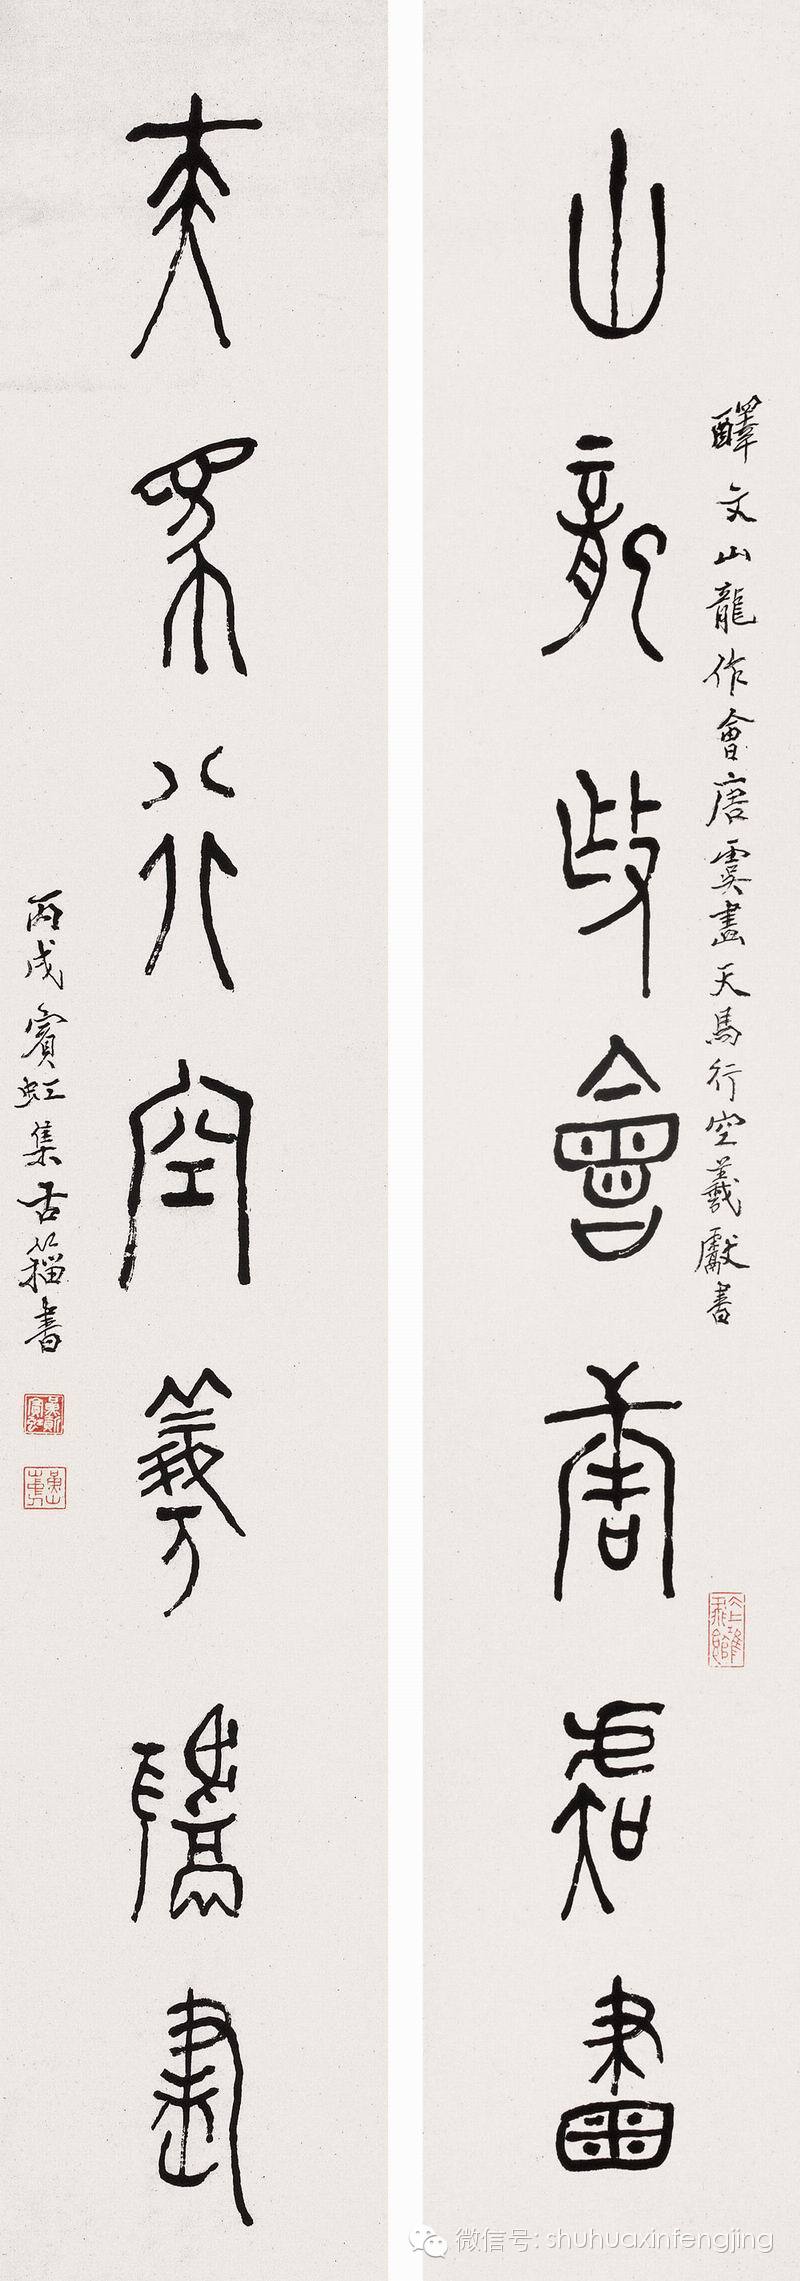 山龍作會唐虞畫
釋文山龍作會唐虞畫天馬行空羲獻書
天馬行空羲獻書
丙戌賓虹集古籀書
微信号: shuhuaxinfengjing